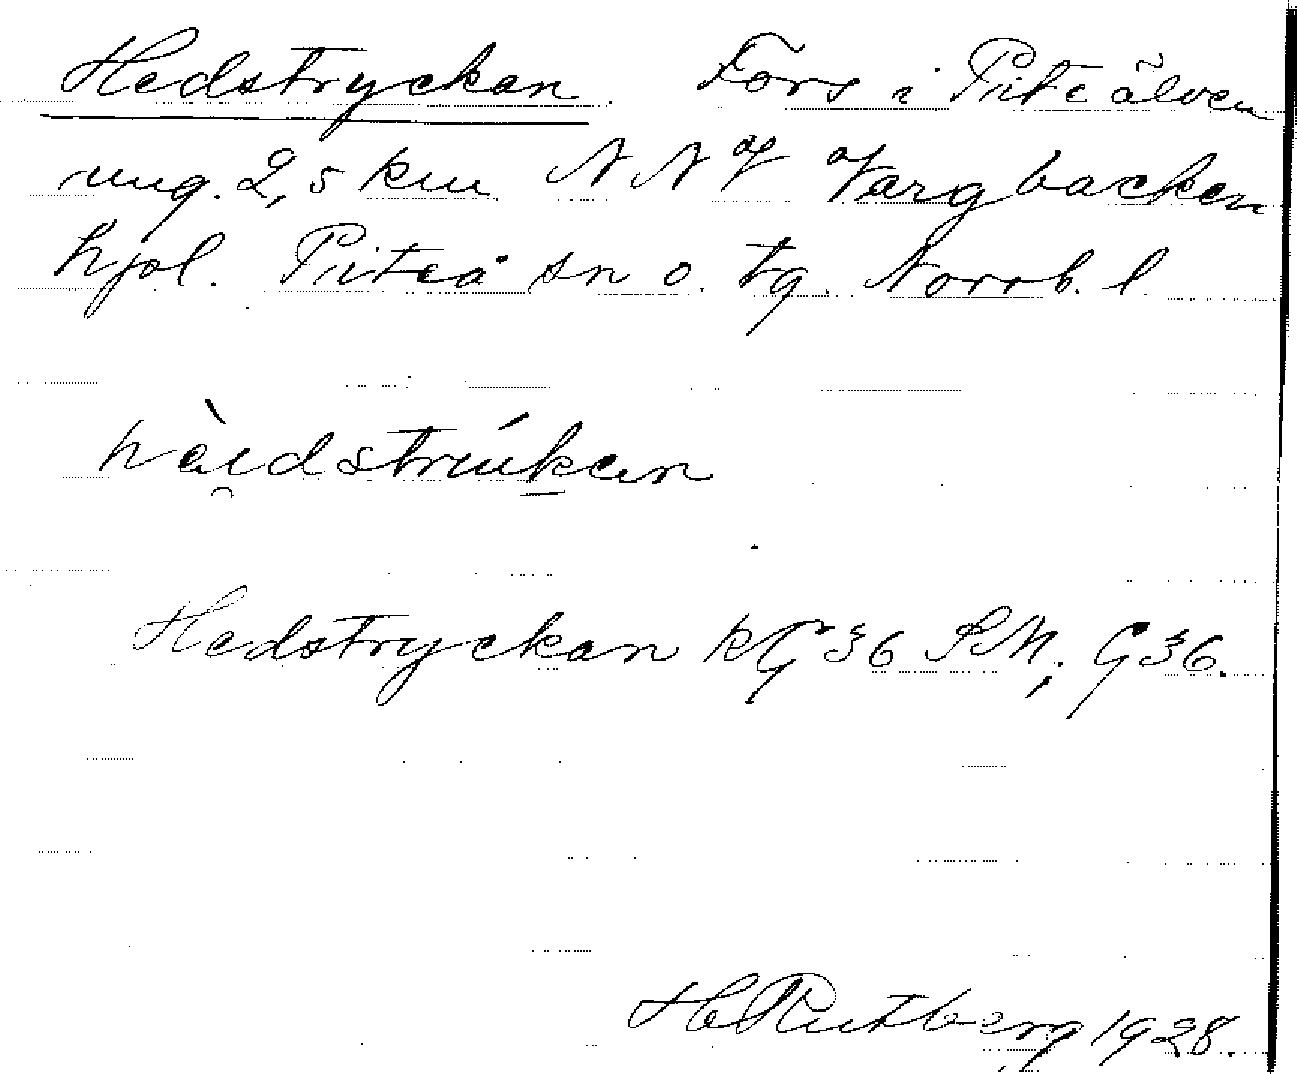 Hedstryckan. Fors i Piteälven
ung. 2,5 km NNV Vargbacken
hjol. Piteå sn o. tg. Norrb. l
hàidstrúkan
Hedstryckan kG 36 SM; G36.
H Rutberg 1928.